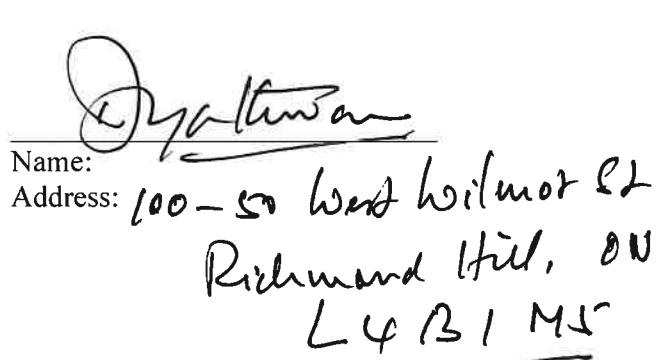 Name:
Address: 100-50 West Wilmot St
Richmond Hill, ON
L4B1M5